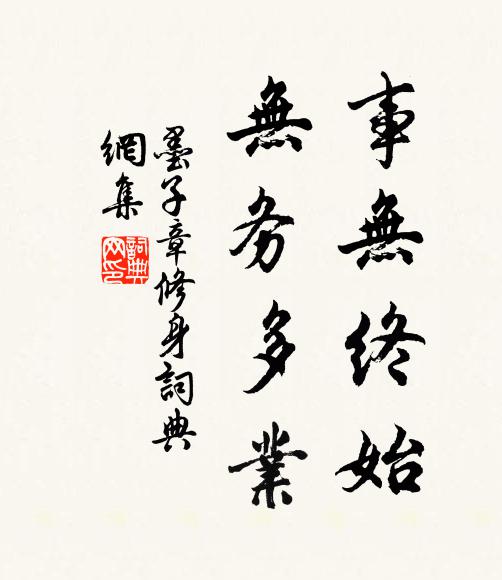 事無終始
無务多業
墨子章修身詞典
網集
詞典
网印